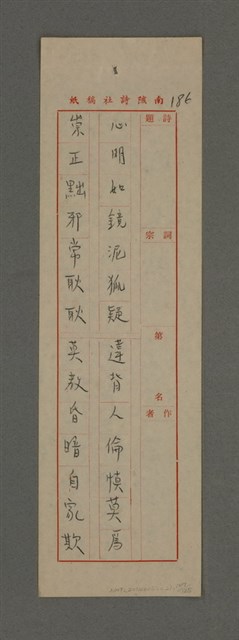 南陔詩社稿紙
186
詩題
詞宗
第 名
作者
心明如鏡泥狐疑違背人倫慎莫為
崇正黜邪常耿耿莫教昏暗自家欺